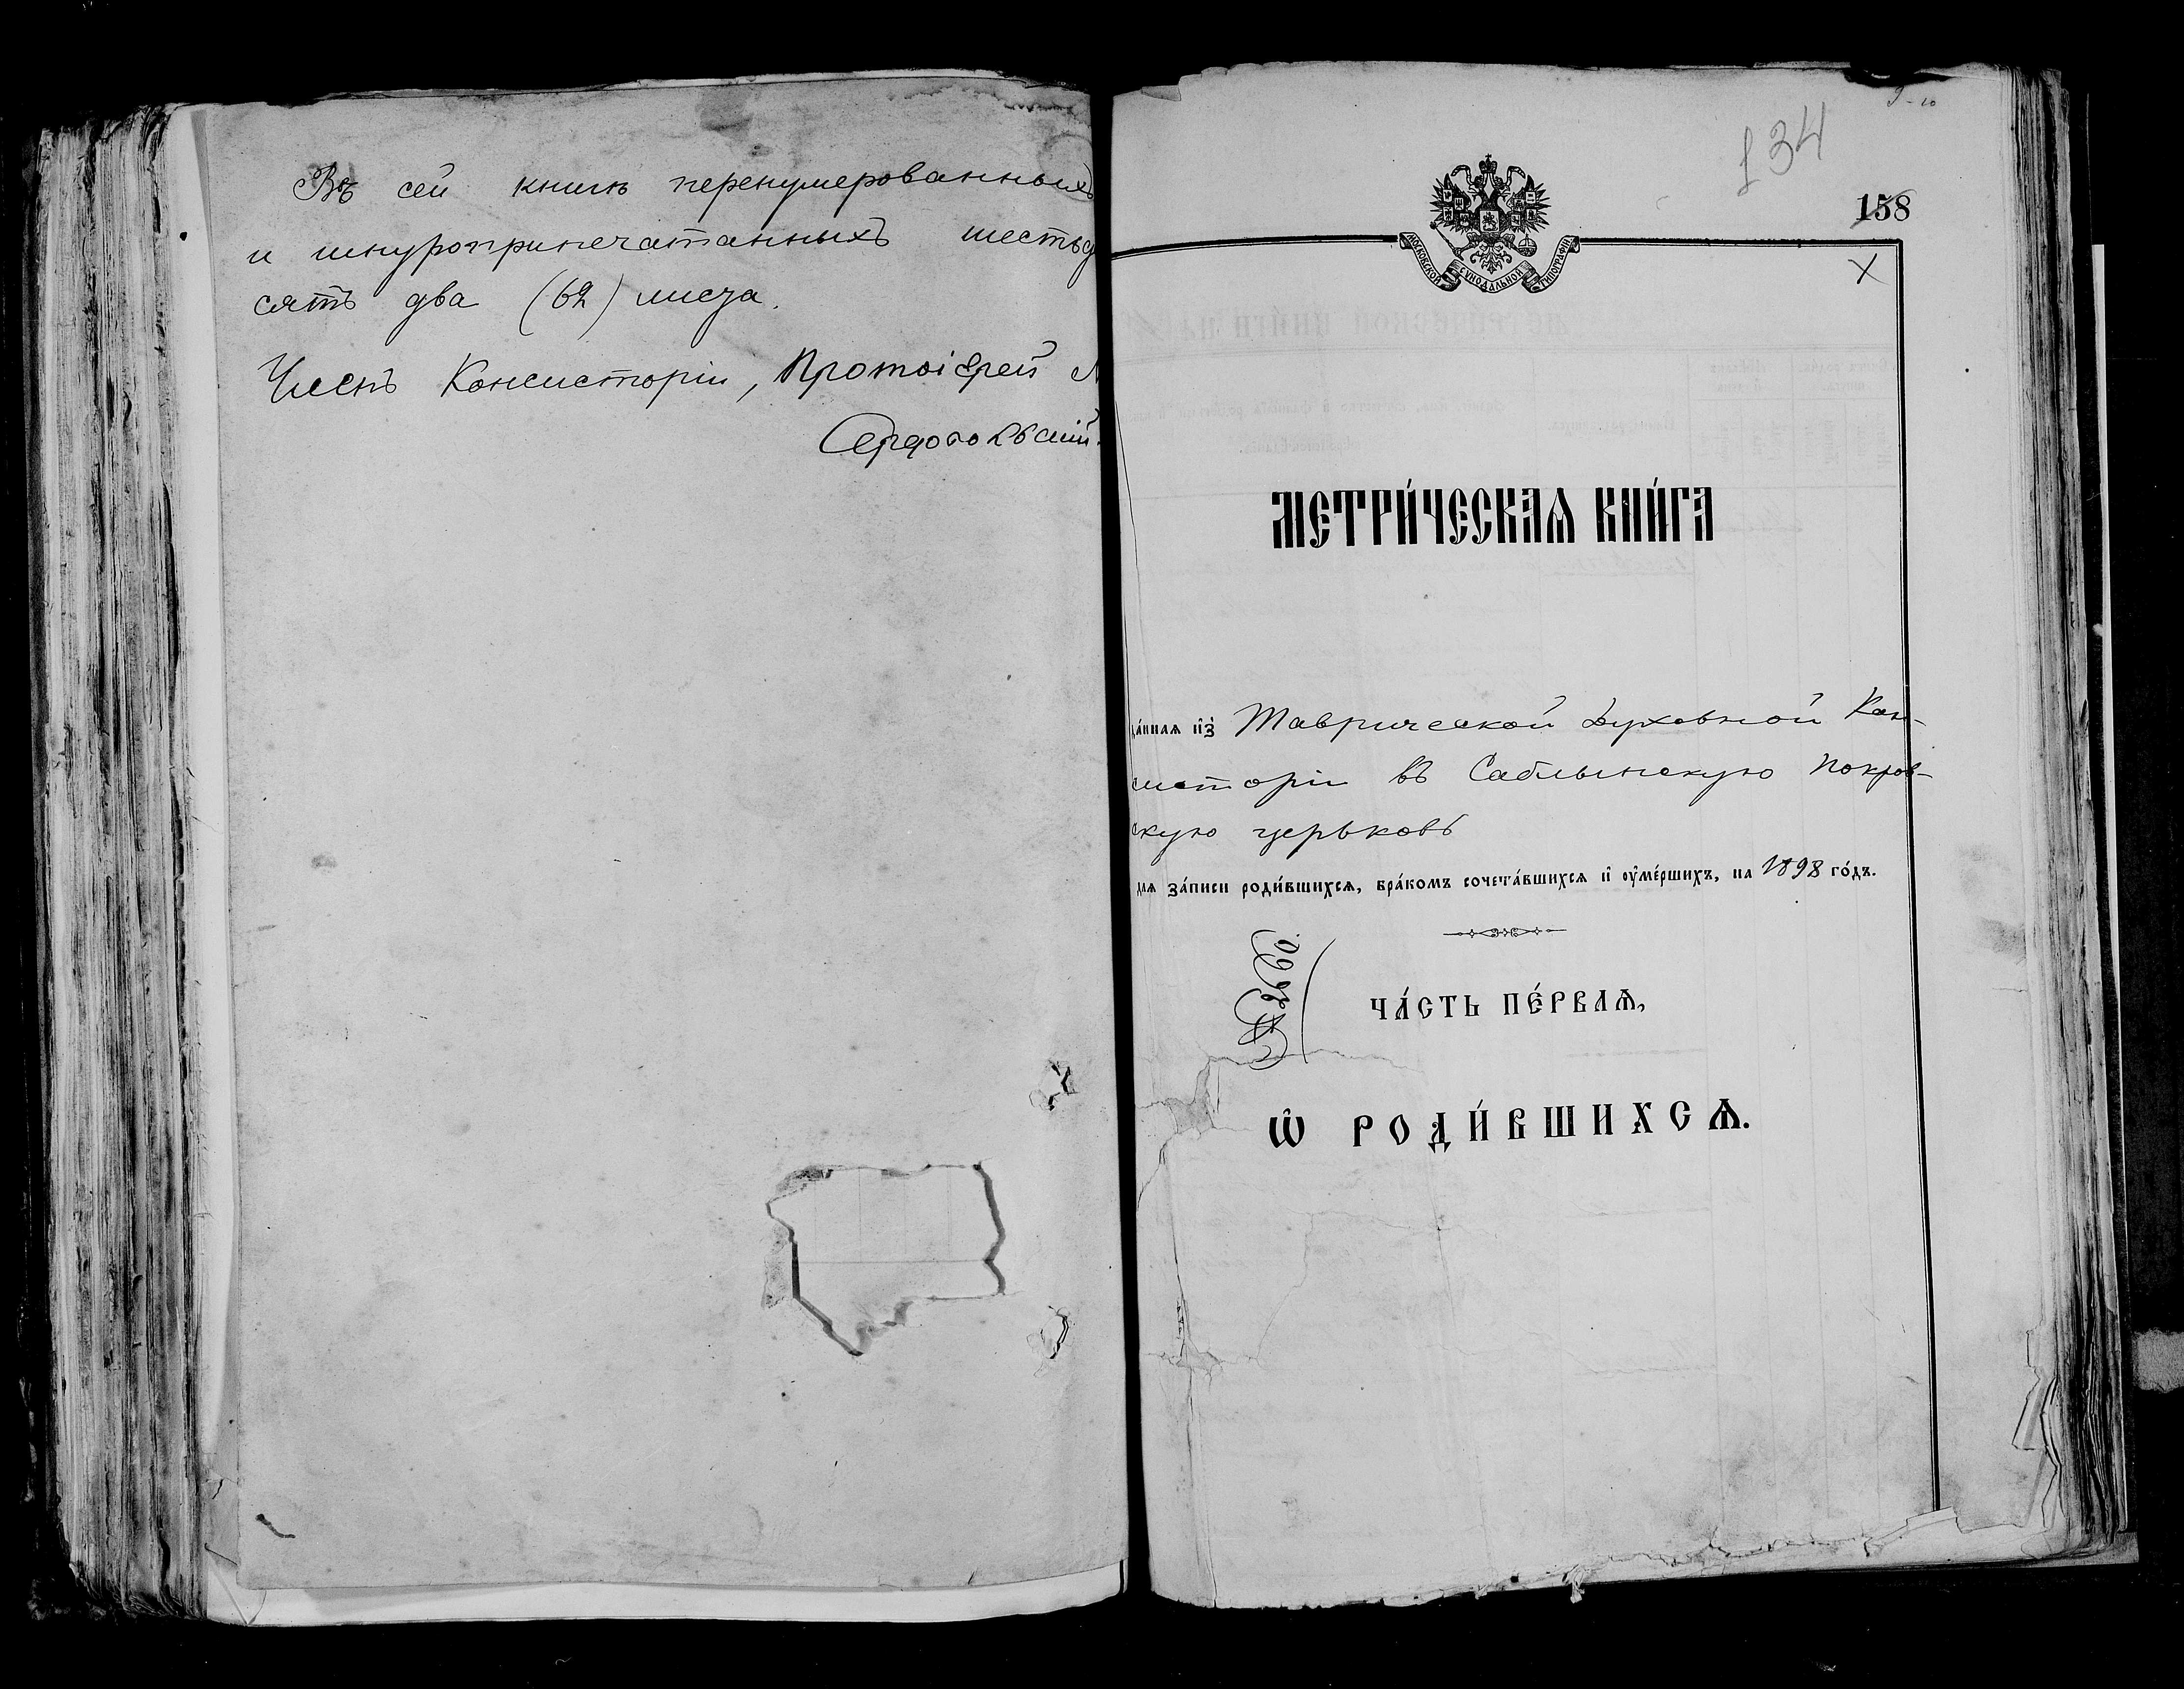 Въ сей книгѣ перенумерованныхъ
и шнуроприпечатанныхъ шестьд
сятъ два (62) листа.
Членъ Консисторіи, Протоіерей
134
158
МОСКОВСКОЙ СѴНОДАЛЬНОЙ ТИПОГРАФІИ
МЕТРИ́ЧЕСКАѦ КНИ́ГА
да́ннаѧ и҆з̾ Таврической Духовной Кон-
систоріи въ Саблынскую Покров-
скую церковь
для за́писи роди́вшихсѧ, бра́комъ сочета́вшихсѧ и҆ ᲂу҆ме́ршихъ, на 1898 го́дъ.
ЧА́СТЬ ПЕ́РВАѦ,
Ѡ҆ РОДИ́ВШИХСѦ.